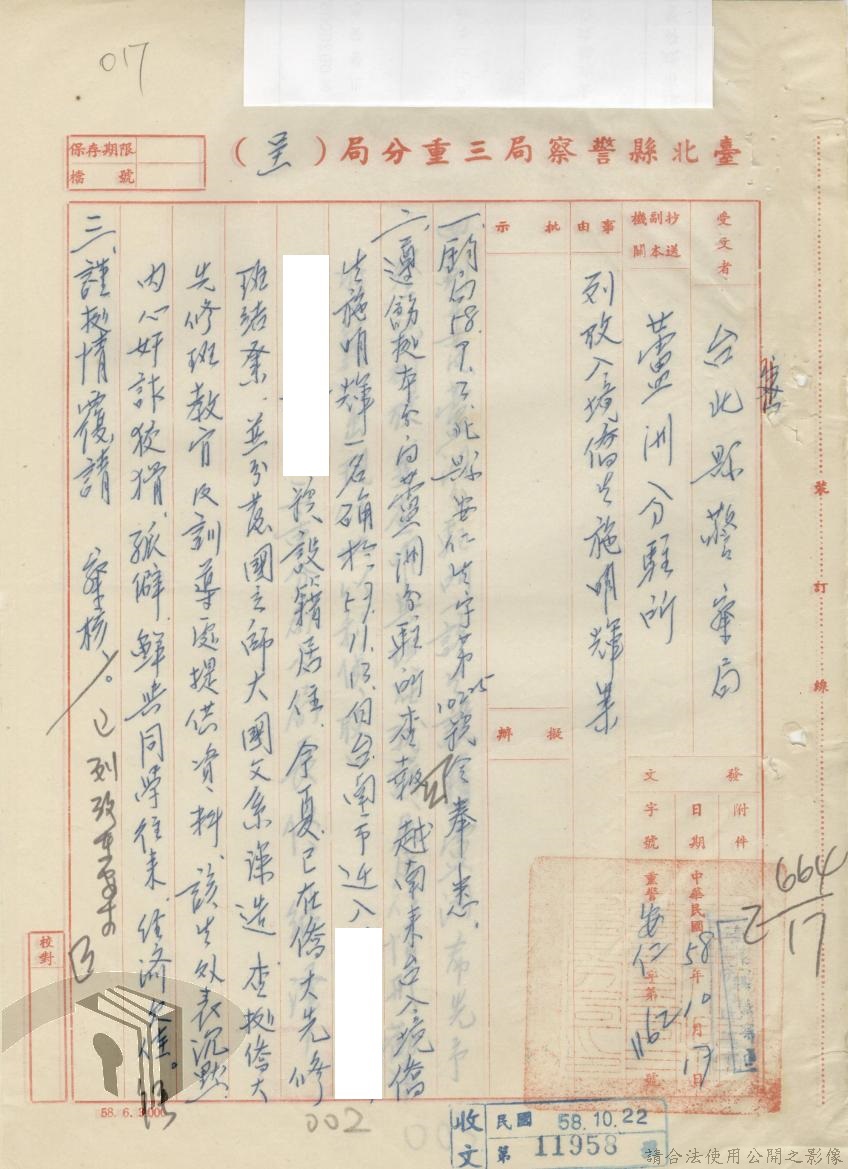 017
臺北縣警察局三重分局（呈）
保存期限
檔號
受文者
台北縣警察局
抄送副本機關
蘆洲分駐所
事由
列攷入境僑生施明輝案
批示
擬辦
發文
附件
日期
中華民國58年10月17日
字號
重警安仁字第1162號
664
17
一、鈞局58.9.3.北縣安仁字第號令奉悉。
二、遵飭據本分局蘆洲分駐所查報越南來台入境僑
生施明輝一名確於57.11.13.由台南市迁入
設籍居住，今夏已在僑大先修
班結業，並分發國立師大國文系深造，查據僑大
先修班教官及訓導處提供資料，該生外表沉默
內心奸詐狡猾，孤僻，鮮與同學往來，經濟欠佳。
三、謹報情覆請 察核。
已列攷
裝
訂
線
校對
58. 6. 3,000
002
收文
民國 58.10.22
第 11958 號
請合法使用公開之影像